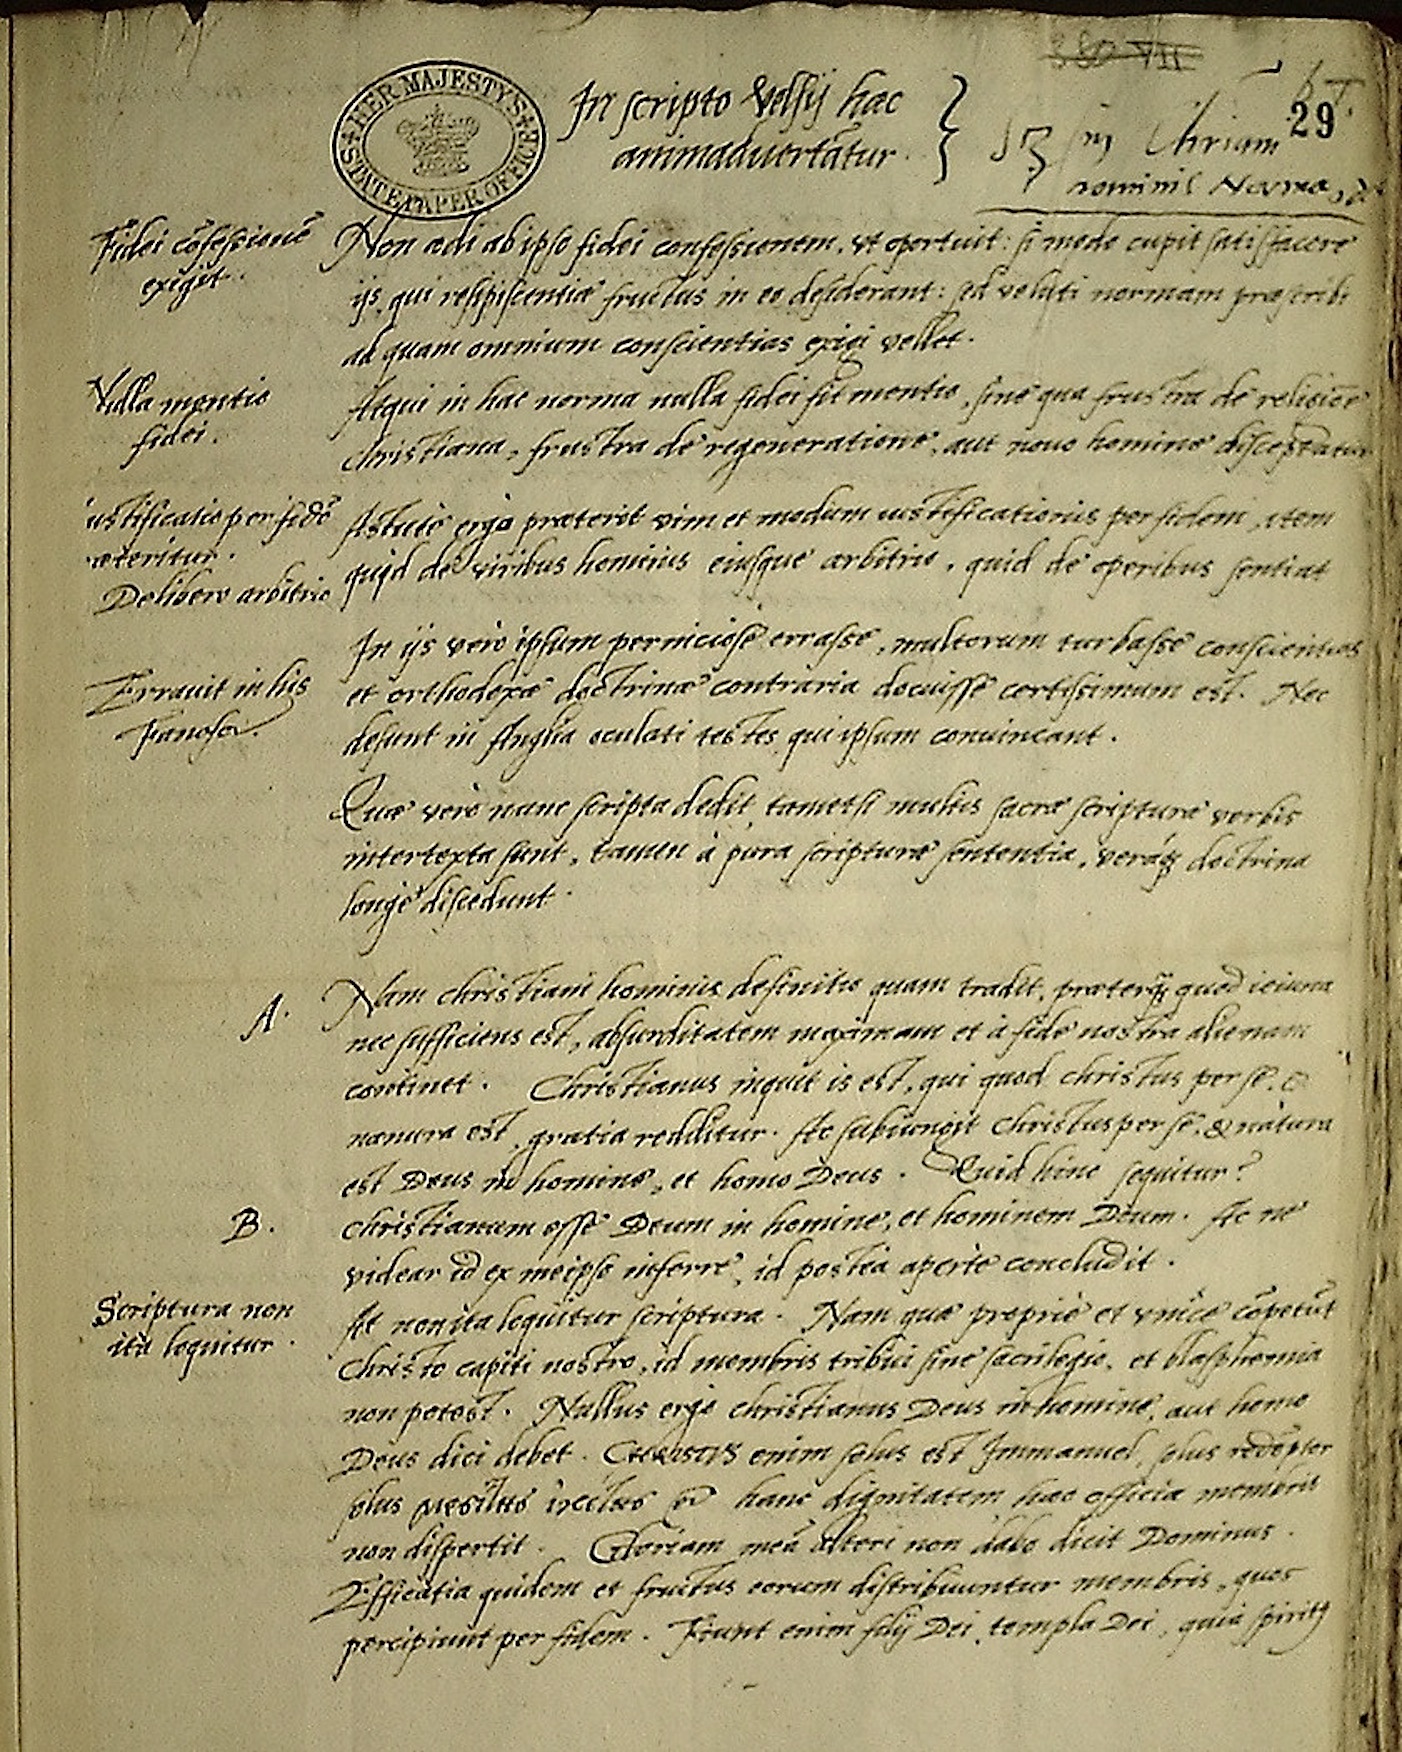 HER MAJESTY'S STATE PAPER OFFICE
29
In scripto Velsij hæc
animaduertātur.
in Christianam
hominis Norma
Fidei cōfessionē
exigit.
Non ædi ab ipso fidei confessionem, vt oportuit: si modo cupit satisfacere
ijs, qui resipiscentiæ fructus in eo desiderant: sed veluti normam præscribi
ad quam omnium conscientias exigi vellet.
Nulla mentio
fidei.
Atqui in hac norma nulla fidei fit mentio, sine qua frustra de religiōe
christiana, frustra de regeneratione, aut nouo homine disceptatur
iustificatio per fidē
præteritur.
De libero arbitrio
Astute ergo præterit vim et modum iustificationis per fidem, item
quid de viribus hominis eiusque arbitrio, quid de operibus sentiat
Errauit in his
In ijs vero ipsum perniciose errasse, multorum turbasse conscientias
et orthodoxæ doctrinæ contraria docuisse certissimum est. Nec
desunt in Anglia oculati testes qui ipsum conuincant.
Quæ vero nunc scripta dedit, tametsi multis sacræ scripturæ verbis
intertexta sunt, tamen à pura scripturæ sententia, veráq; doctrina
longè discedunt.
A.
Nam christiani hominis definitio quam tradit, præterq; quod ieiuna
nec sufficiens est, absurditatem maximam et à fide nostra alienam
continet. Christianus inquit is est, qui quod christus per se, &
natura est, gratia redditur. Ac subiungit Christus per se, & natura
est Deus in homine, et homo Deus. Quid hinc sequitur?
B.
christianum esse Deum in homine, et hominem Deum. Ac ne
videar id ex meipso inferre, id postea aperte concludit.
Scriptura non
ita loquitur.
At non ita loquitur scriptura. Nam quæ proprie et vnice cōpetūt
christo capiti nostro, id membris tribui sine sacrilegio, et blasphemia
non potest. Nullus ergo christianus Deus in homine, aut homo
Deus dici debet. Christus enim solus est Immanuel, solus redēptor
solus hanc dignitatem hæc officia membris
non dispertit. Gloriam meā alteri non dabo dicit Dominus.
Efficatia quidem et fructus eorum distribuuntur membris, quos
percipiunt per fidem. Fiunt enim filij Dei, templa Dei, quia spiritꝯ